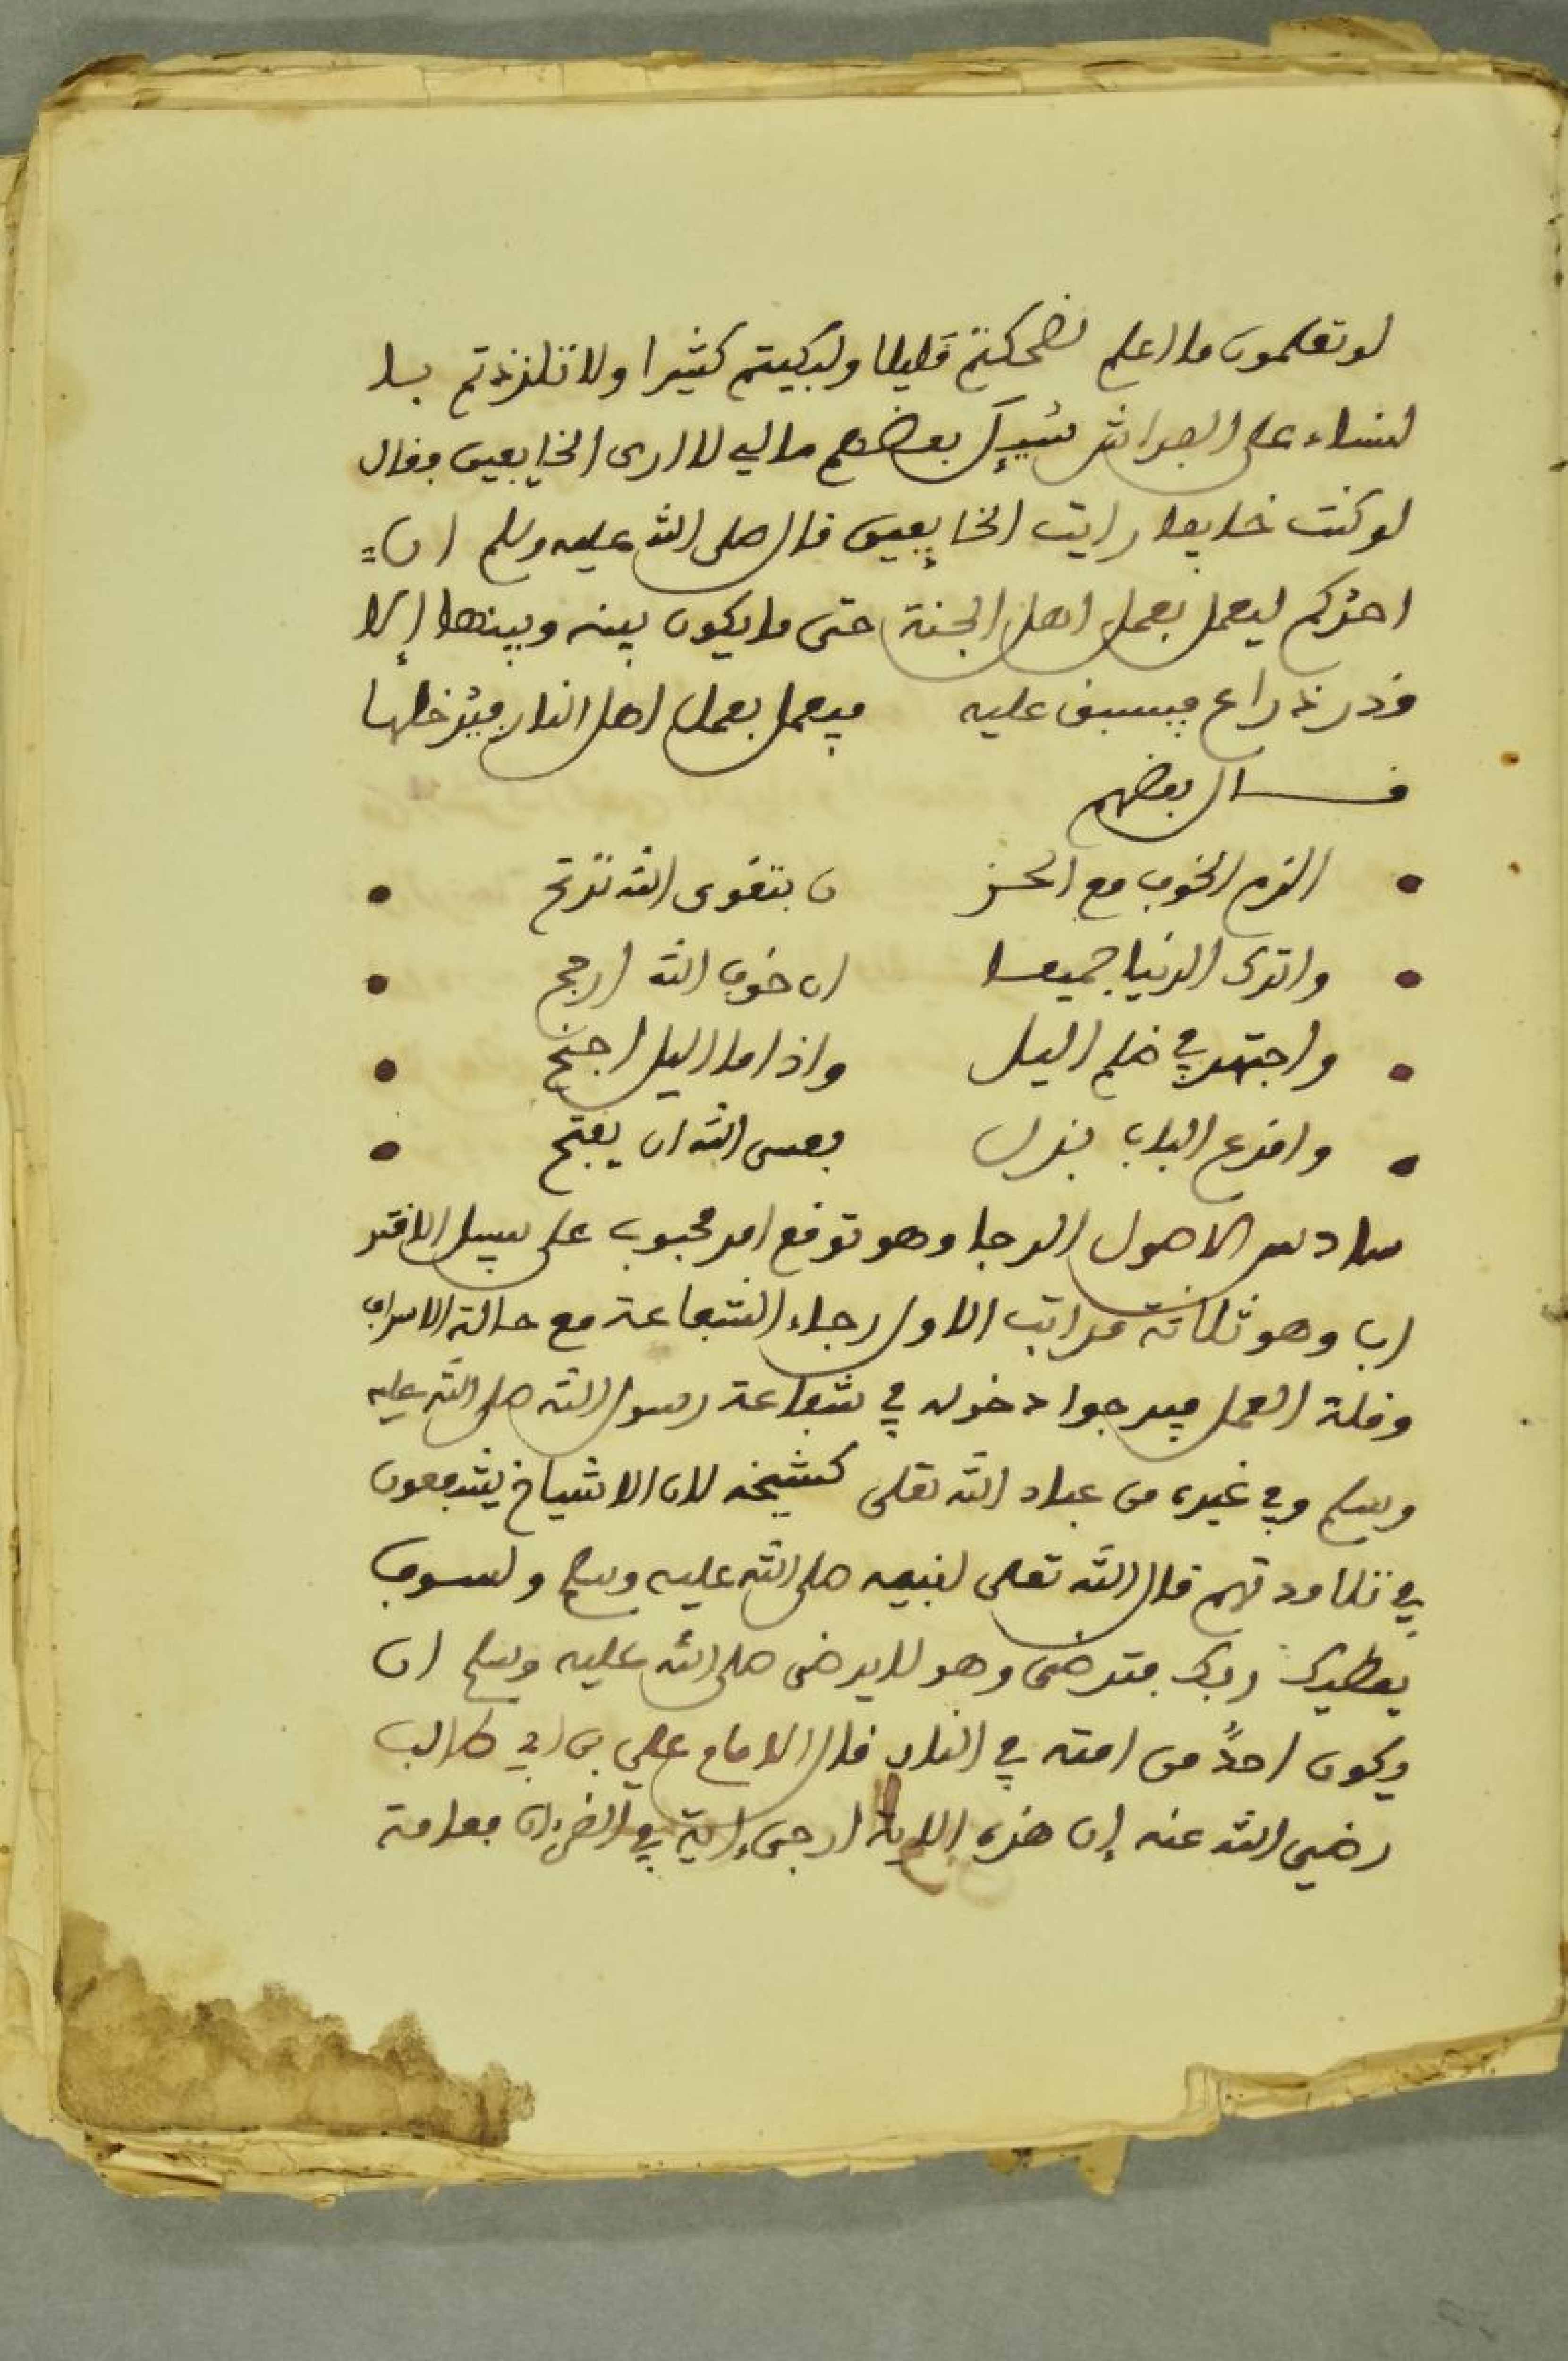 لو تعلمون ما اعلم لضحكتم قليلا ولبكيتم كثيرا ولا تلذذتم با
لنساء على الفراش سُئِل بعضهم مالي لا ارى الخايفين فقال
لو كنت خايفا رايت الخايفين قال صلى الله عليه وسلم ان
احدكم ليعمل بعمل اهل الجنة حتى ما يكون بينه وبينها إلا
قدر ذراع فيسبق عليه فيعمل بعمل اهل النار فيدخلها
قال بعضهم
الزم الخوف مع الحز ن بتقوى الله تربح
واترك الدنيا جميعا ان خوف الله ارجح
واجتهد في ظلم اليل واذا ما اليل اجنح
واقرع الباب بذل فعسى الله ان يفتح
سادس الاصول الرجا وهو توقع امر محبوب على سبيل الاقتر
اب وهو ثلاثة مراتب الاول رجاء الشفاعة مع حالة الاسراف
وقلة العمل فيرجوا دخوله في شفاعة رسول الله صلى الله عليه
وسلم وفي غيره من عباد الله تعلى كشيخه لان الاشياخ يشفعون
في تلامدتهم قال الله تعلى لنبيه صلى الله عليه وسلم ولسوف
يعطيك ربك فترضى وهو لا يرضى صلى الله عليه وسلم ان
يكون احدً من امته في النار قال الامام علي بن ابي طالب
رضي الله عنه إن هذه الاية ارجى اية في القرءان فعامة